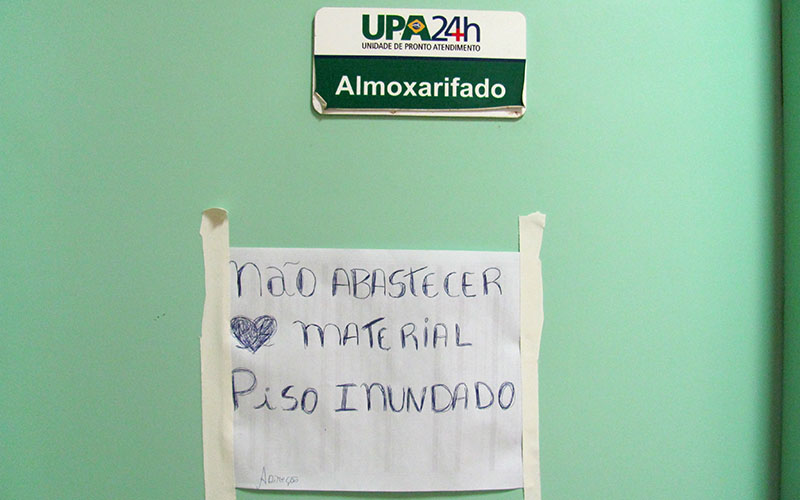 UPA24h
UNIDADE DE PRONTO ATENDIMENTO
Almoxarifado
Não ABASTECER
MATERIAL
Piso INUNDADO
A Direção